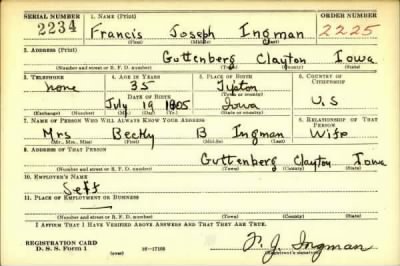 SERIAL NUMBER 1. NAME (Print) ORDER NUMBER
2234 Francis Joseph Ingman 2225
(First) (Middle) (Last)
2. ADDRESS (Print)
Guttenberg Clayton Iowa
(Number and street or R. F. D. number) (Town) (County) (State)
3. TELEPHONE 4. AGE IN YEARS 5. PLACE OF BIRTH 6. COUNTRY OF CITIZENSHIP
none 35 Tipton
DATE OF BIRTH (Town or county)
July 19 1905 Iowa U.S
(Exchange) (Number) (Mo.) (Day) (Yr.) (State or country)
7. NAME OF PERSON WHO WILL ALWAYS KNOW YOUR ADDRESS 8. RELATIONSHIP OF THAT PERSON
Mrs Becky B Ingman Wife
(Mr., Mrs., Miss) (First) (Middle) (Last)
9. ADDRESS OF THAT PERSON
Guttenberg Clayton Iowa
(Number and street or R. F. D. number) (Town) (County) (State)
10. EMPLOYER'S NAME
Self
11. PLACE OF EMPLOYMENT OR BUSINESS
(Number and street or R. F. D. number) (Town) (County) (State)
I AFFIRM THAT I HAVE VERIFIED ABOVE ANSWERS AND THAT THEY ARE TRUE.
REGISTRATION CARD
D. S. S. Form 1 16-17105 F. J. Ingman
(Registrant's signature)